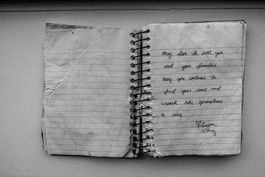 May love be with you
and your families
may you continue to
find your voice and
reward the generations
to come